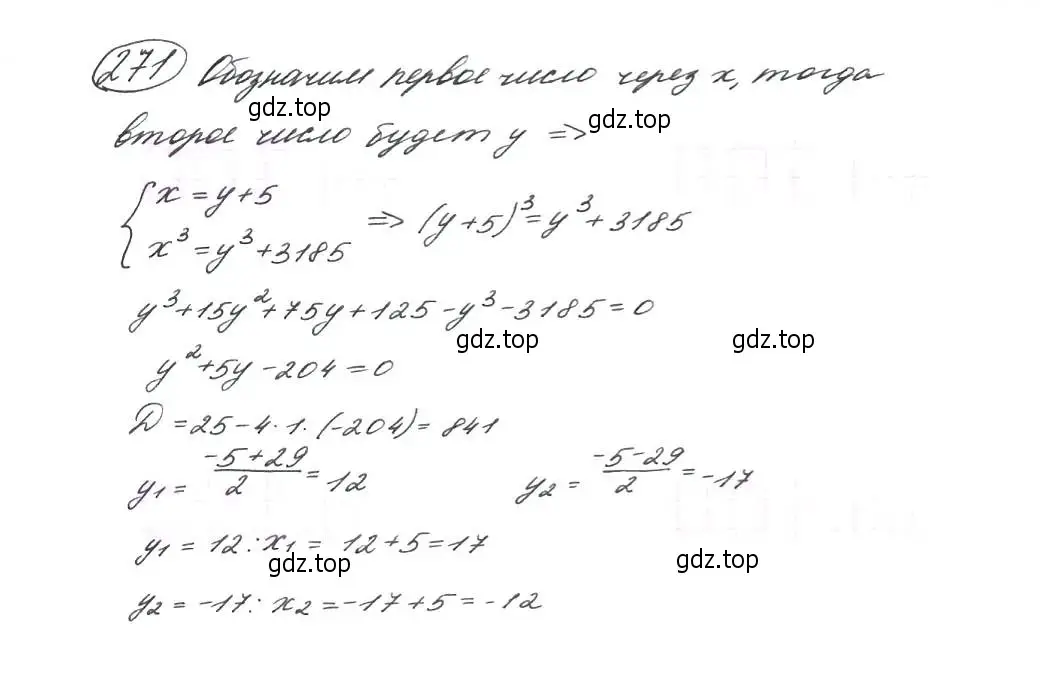 271 Обозначим первое число через x, тогда
gdz.top
gdz.top
второе число будет y =>
{ x = y+5
x³ = y³+3185 => (y+5)³ = y³+3185
y³+15y²+75y+125-y³-3185=0
gdz.top
gdz.top
y²+5y-204=0
D = 25-4·1·(-204)= 841
y₁ = (-5+29)/2 = 12 y₂ = (-5-29)/2 = -17
y₁ = 12: x₁ = 12+5=17
gdz.top
gdz.top
y₂ = -17: x₂ = -17+5 = -12